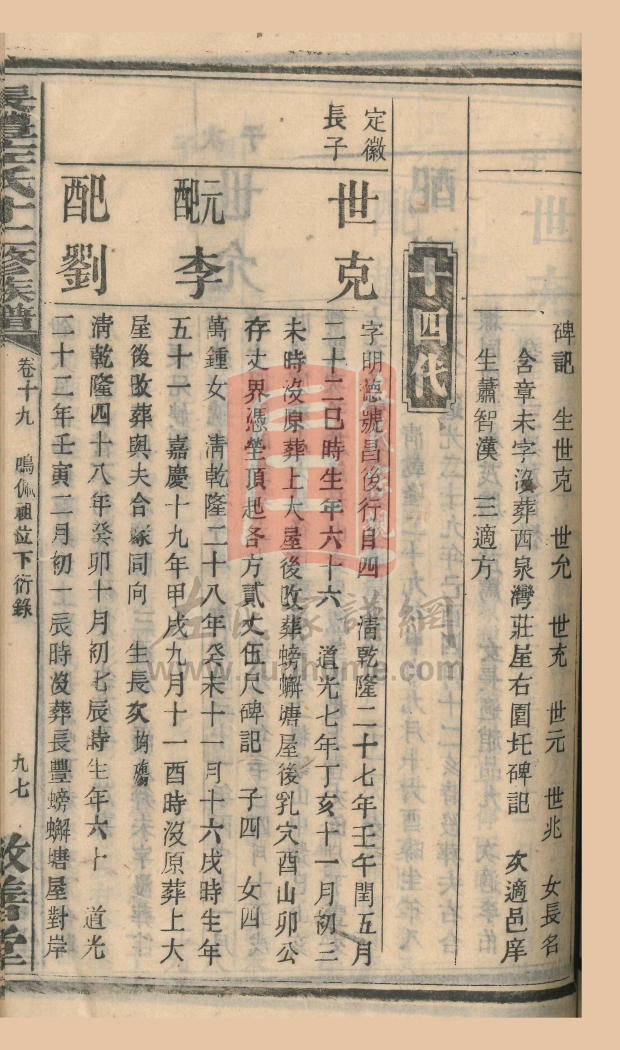 碑記　生世克　世允　世充　世元　世兆　女長名
含章未字沒葬西泉灣莊屋右圍圫碑記　次適邑庠
生蕭智漢　三適方
十四代
定徽
長子
世克
字明德號昌後行自四　清乾隆二十七年壬午閏五月
二十二巳時生年六十六　道光七年丁亥十一月初三
未時沒原葬上大屋後改葬螃蠏塘屋後乳穴酉山卯公
存丈界憑塋頂起各方貳丈伍尺碑記　子四　女四
元配李
萬鍾女　清乾隆二十八年癸未十一月十六戌時生年
五十一　嘉慶十九年甲戌九月十一酉時沒原葬上大
屋後改葬與夫合冢同向　生長次均殤
配劉
清乾隆四十八年癸卯十月初七辰時生年六十　道光
二十二年壬寅二月初一辰時沒葬長豐螃蠏塘屋對岸
長豐左氏十二修族譜
卷十九　鳴佩祖位下衍錄
九七
敬善堂
左氏家譜網